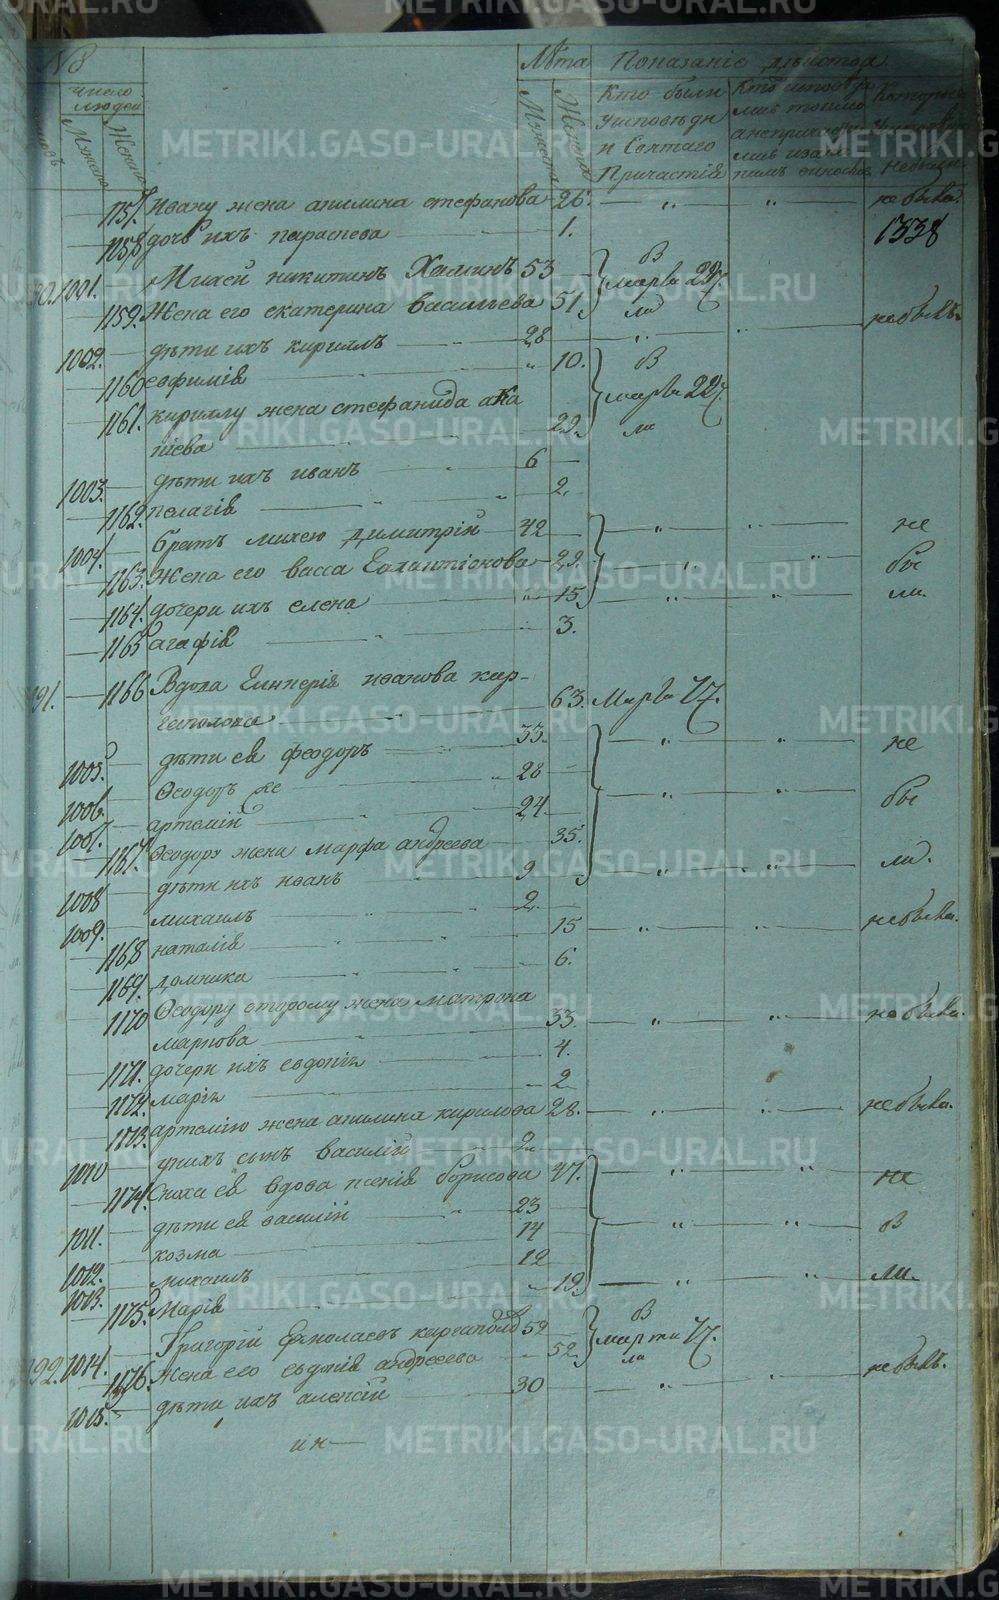 №8
Лѣта Показаніе дѣйства
число людей
Мужеска
Женска
Кто были Исповѣди и Святаго Причастія
1157. Ивану жена апилина стефанова 26. " " не была.
1158 дочь ихъ параскева 1. 1338
1001. Михей никитинъ Халминъ 53 В Марта 22
1159. Жена его екатерина васильева 51. ли
1002. дѣти ихъ кириллъ 28 " " небылъ.
1160 евфимія " 10. В
1161. кириллу жена стефанида ака марта 22
піева 29. ли
1003. дѣти ихъ иванъ 6
1162. пелагія " 2.
1004. братъ михею димитрій 42 " " не
1163. Жена его васса 29. " " бы
1164. дочери ихъ елена 15 " " ли.
1165 агафія " 3.
191. 1166 Вдова иванова кар-
гаполова 63. Марта 17.
1005. дѣти ея феодоръ 33. " " не
1006. Феодоръ же 28 " " бы
1007. артемій 24
1167. Феодору жена марфа андреева 35.
1008 дѣти ихъ иванъ 9 " " ли.
1009. михаилъ 2.
1168 наталія 15 " " небыла.
1169. домника 6.
1170 Феодору второму жена матрона
маркова 33. " " не была.
1171. дочери ихъ евдокія 4.
1172. марія 2
1173. артемію жена апилина кирилова 28. " " небыла.
1010 у нихъ сынъ василій 2
1174. Сноха ея вдова ксенія борисова 47. " " не
1011. дѣти ея василій 23 " " б
1012. козма 14
1013. михаилъ 12 " " ли.
1175. Марія 19
192. 1014. Григорій Ермолаевъ каргаполовъ 59 В марта 17.
1176. Жена его евдокія андреева 52. ли
1015. дѣти ихъ алексій 30 " " небылъ.